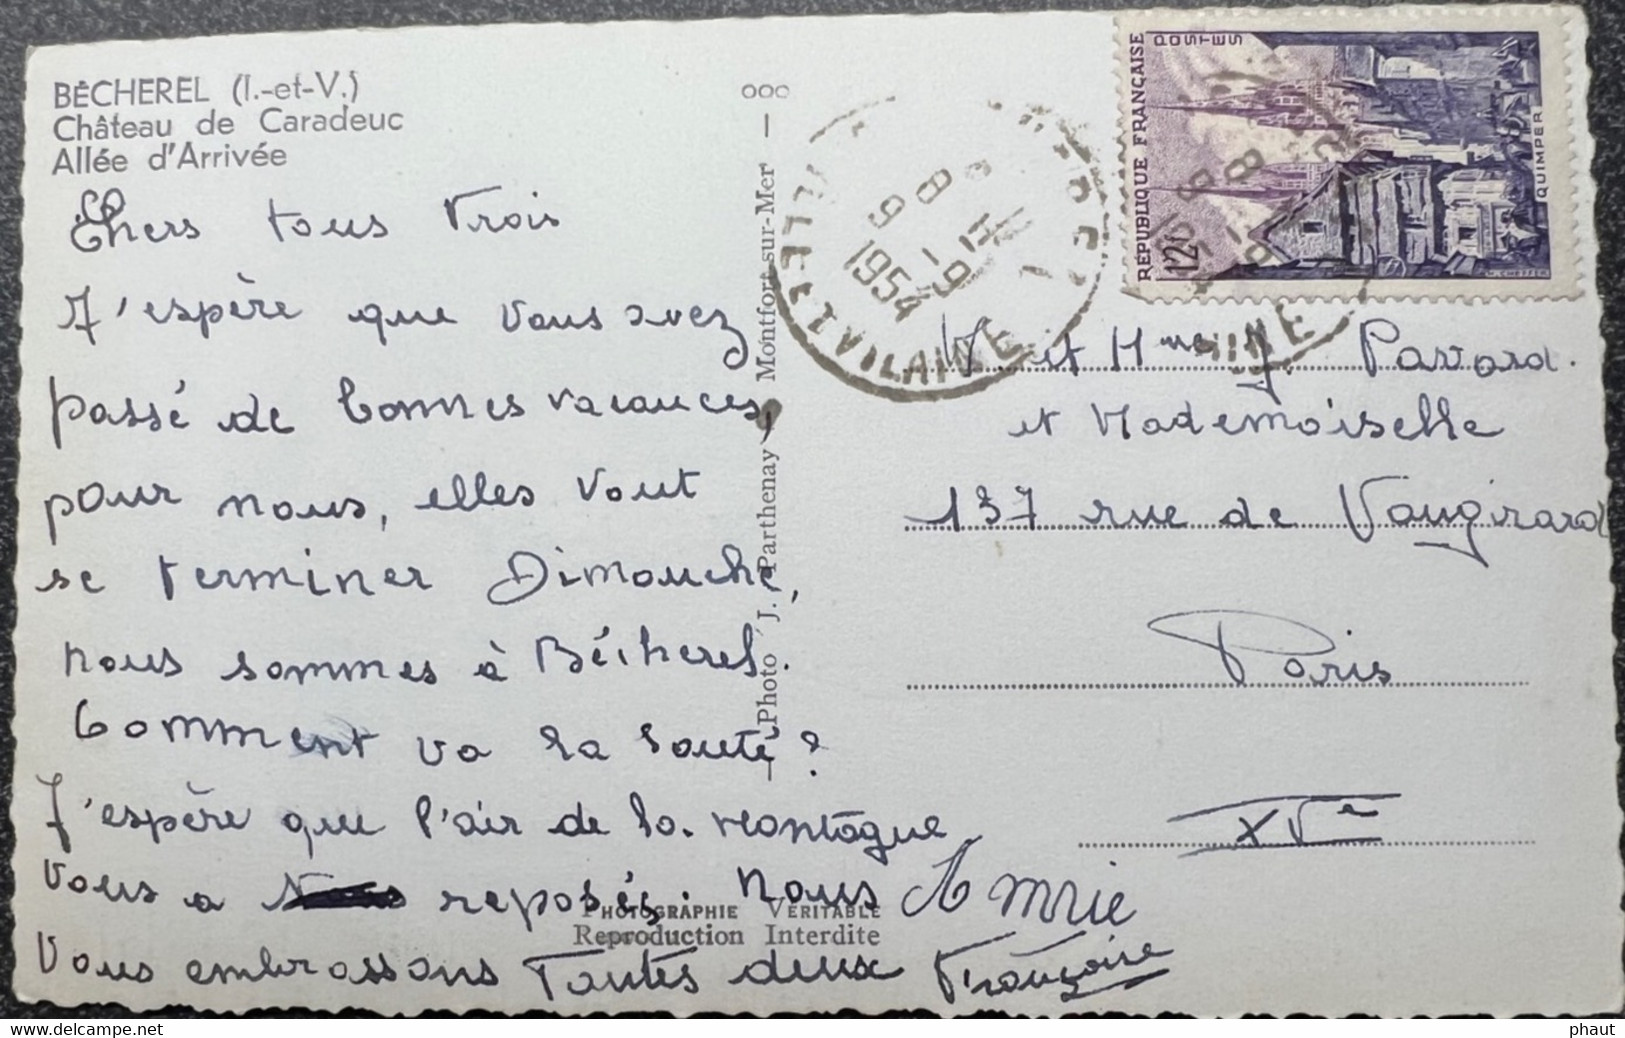 BÉCHEREL (I.-et-V.)
Château de Caradeuc
Allée d'Arrivée
Chers tous trois
J'espère que vous avez
passé de bonnes vacances,
pour nous, elles vont
se terminer Dimanche,
nous sommes à Bécherel.
Comment va la santé ?
J'espère que l'air de la montagne
vous a reposés. Nous
vous embrassons Toutes deux
Françoise
Photo J. Parthenay, Montfort-sur-Mer
PHOTOGRAPHIE VÉRITABLE
Reproduction Interdite
ILLE ET VILAINE
9 H
8 - 9
1954
RÉPUBLIQUE FRANÇAISE
POSTES
12F
QUIMPER
et Mme J Pavard.
et Mademoiselle
137 rue de Vaugirard
Paris
XVe
phaut